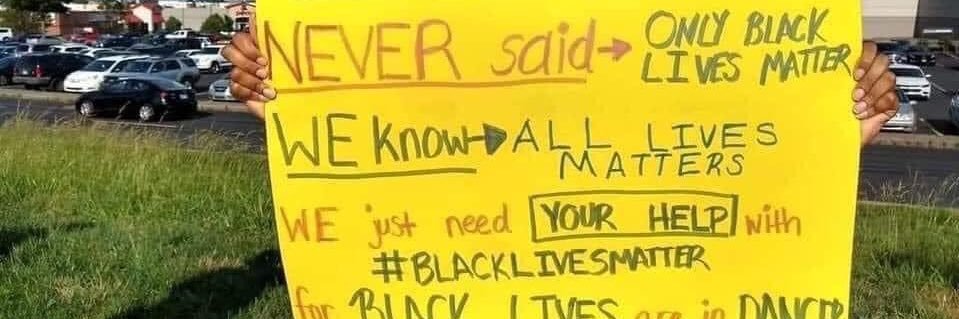 NEVER said→ ONLY BLACK
LIVES MATTER
WE know→ ALL LIVES
MATTERS
WE just need YOUR HELP with
#BLACKLIVESMATTER
for BLACK LIVES are in DANGER